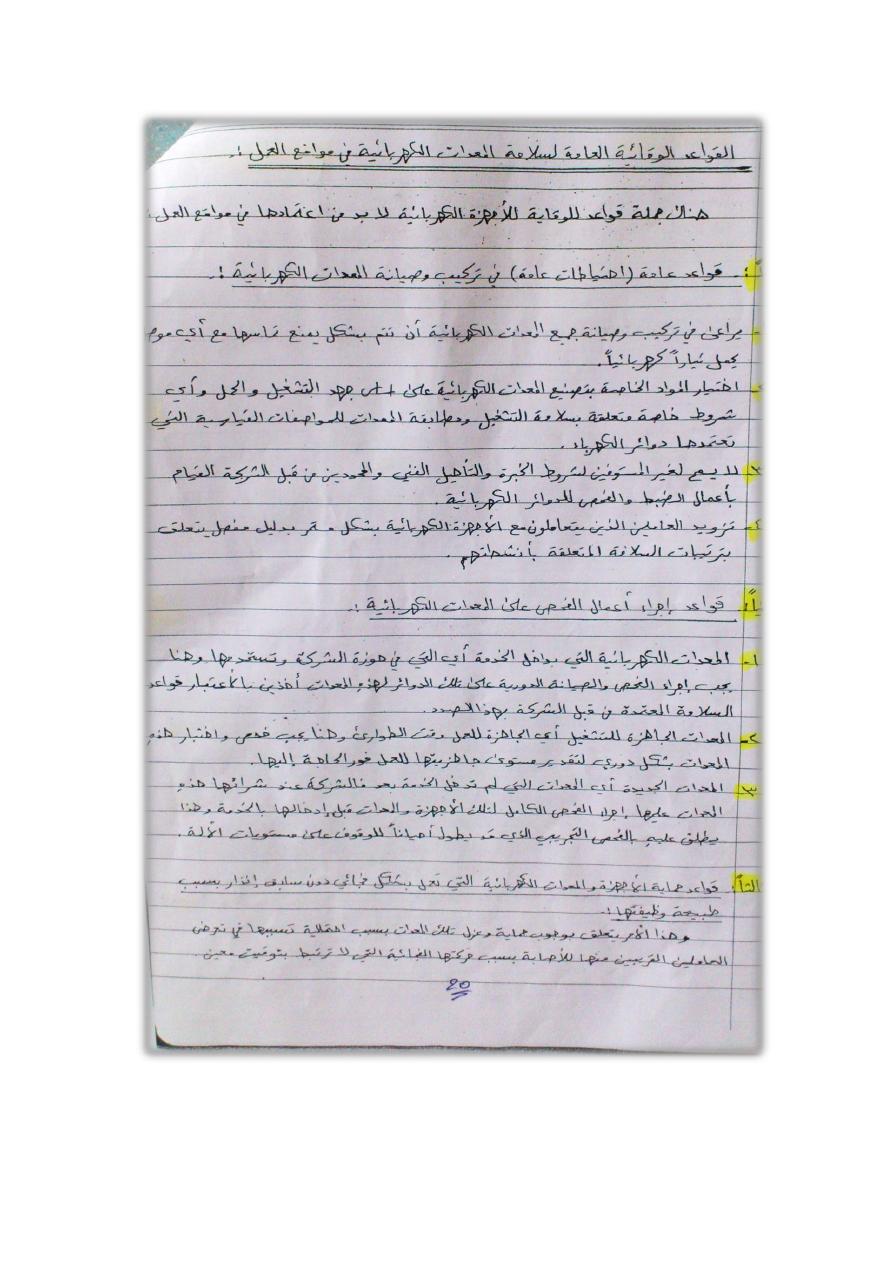 القواعد الوقائية العامة لسلامة المعدات الكهربائية في مواقع العمل :.
هناك جملة قواعد للوقاية للأجهزة الكهربائية لا بد من اعتمادها في مواقع العمل.
قواعد عامة (احتياطات عامة) في تركيب وصيانة المعدات الكهربائية :.
يراعى في تركيب وصيانة جميع المعدات الكهربائية أن تتم بشكل يمنع تماسها مع أي
يحمل تياراً كهربائياً.
اختيار المواد الخاصة بتصنيع المعدات الكهربائية على جهد التشغيل والحمل وأي
شروط خاصة متعلقة بسلامة التشغيل ومطابقة المعدات للمواصفات القياسية التي
تعتمدها دوائر الكهرباء.
٣- لا يسمح لغير المستوفين لشروط الخبرة والتأهيل الفني والمحددين من قبل الشركة القيام
بأعمال الضبط والفحص للدوائر الكهربائية.
٤- تزويد العاملين الذين يتعاملون مع الأجهزة الكهربائية بشكل مستمر بدليل مفصل يتعلق
بترتيبات السلامة المتعلقة بأنشطتهم.
قواعد إجراء أعمال الفحص على المعدات الكهربائية :.
١- المعدات الكهربائية التي بداخل الخدمة أي التي في حوزة الشركة وتستخدمها وهنا
يجب إجراء الفحص والصيانة الدورية على تلك الدوائر لهذه المعدات أخذين بالأعتبار قواعد
السلامة المعتمدة من قبل الشركة بهذا الصدد.
٢- المعدات الجاهزة للتشغيل أي الجاهزة للعمل وقت الطوارئ وهنا يجب فحص واختبار هذه
المعدات بشكل دوري لتقدير مستوى جاهزيتها للعمل فور الحاجة إليها.
٣- المعدات الجديدة أي المعدات التي لم تدخل الخدمة بعد فالشركة عند شرائها هذه
المعدات عليها إجراء الفحص الكامل لتلك الأجهزة والمعدات قبل إدخالها بالخدمة وهذا
يطلق عليه بالفحص التجريبي الذي قد يطول أحياناً للوقوف على مستويات الألة.
قواعد حماية الأجهزة والمعدات الكهربائية التي تعمل بشكل فجائي دون سابق إنذار بسبب
طبيعة وظيفتها :.
وهذا الأمر يتعلق بوجوب حماية وعزل تلك المعدات بسبب احتمالية تسببها في تعرض
العاملين القريبين منها للأصابة بسبب حركتها الفجائية التي لا ترتبط بتوقيت معين.
20